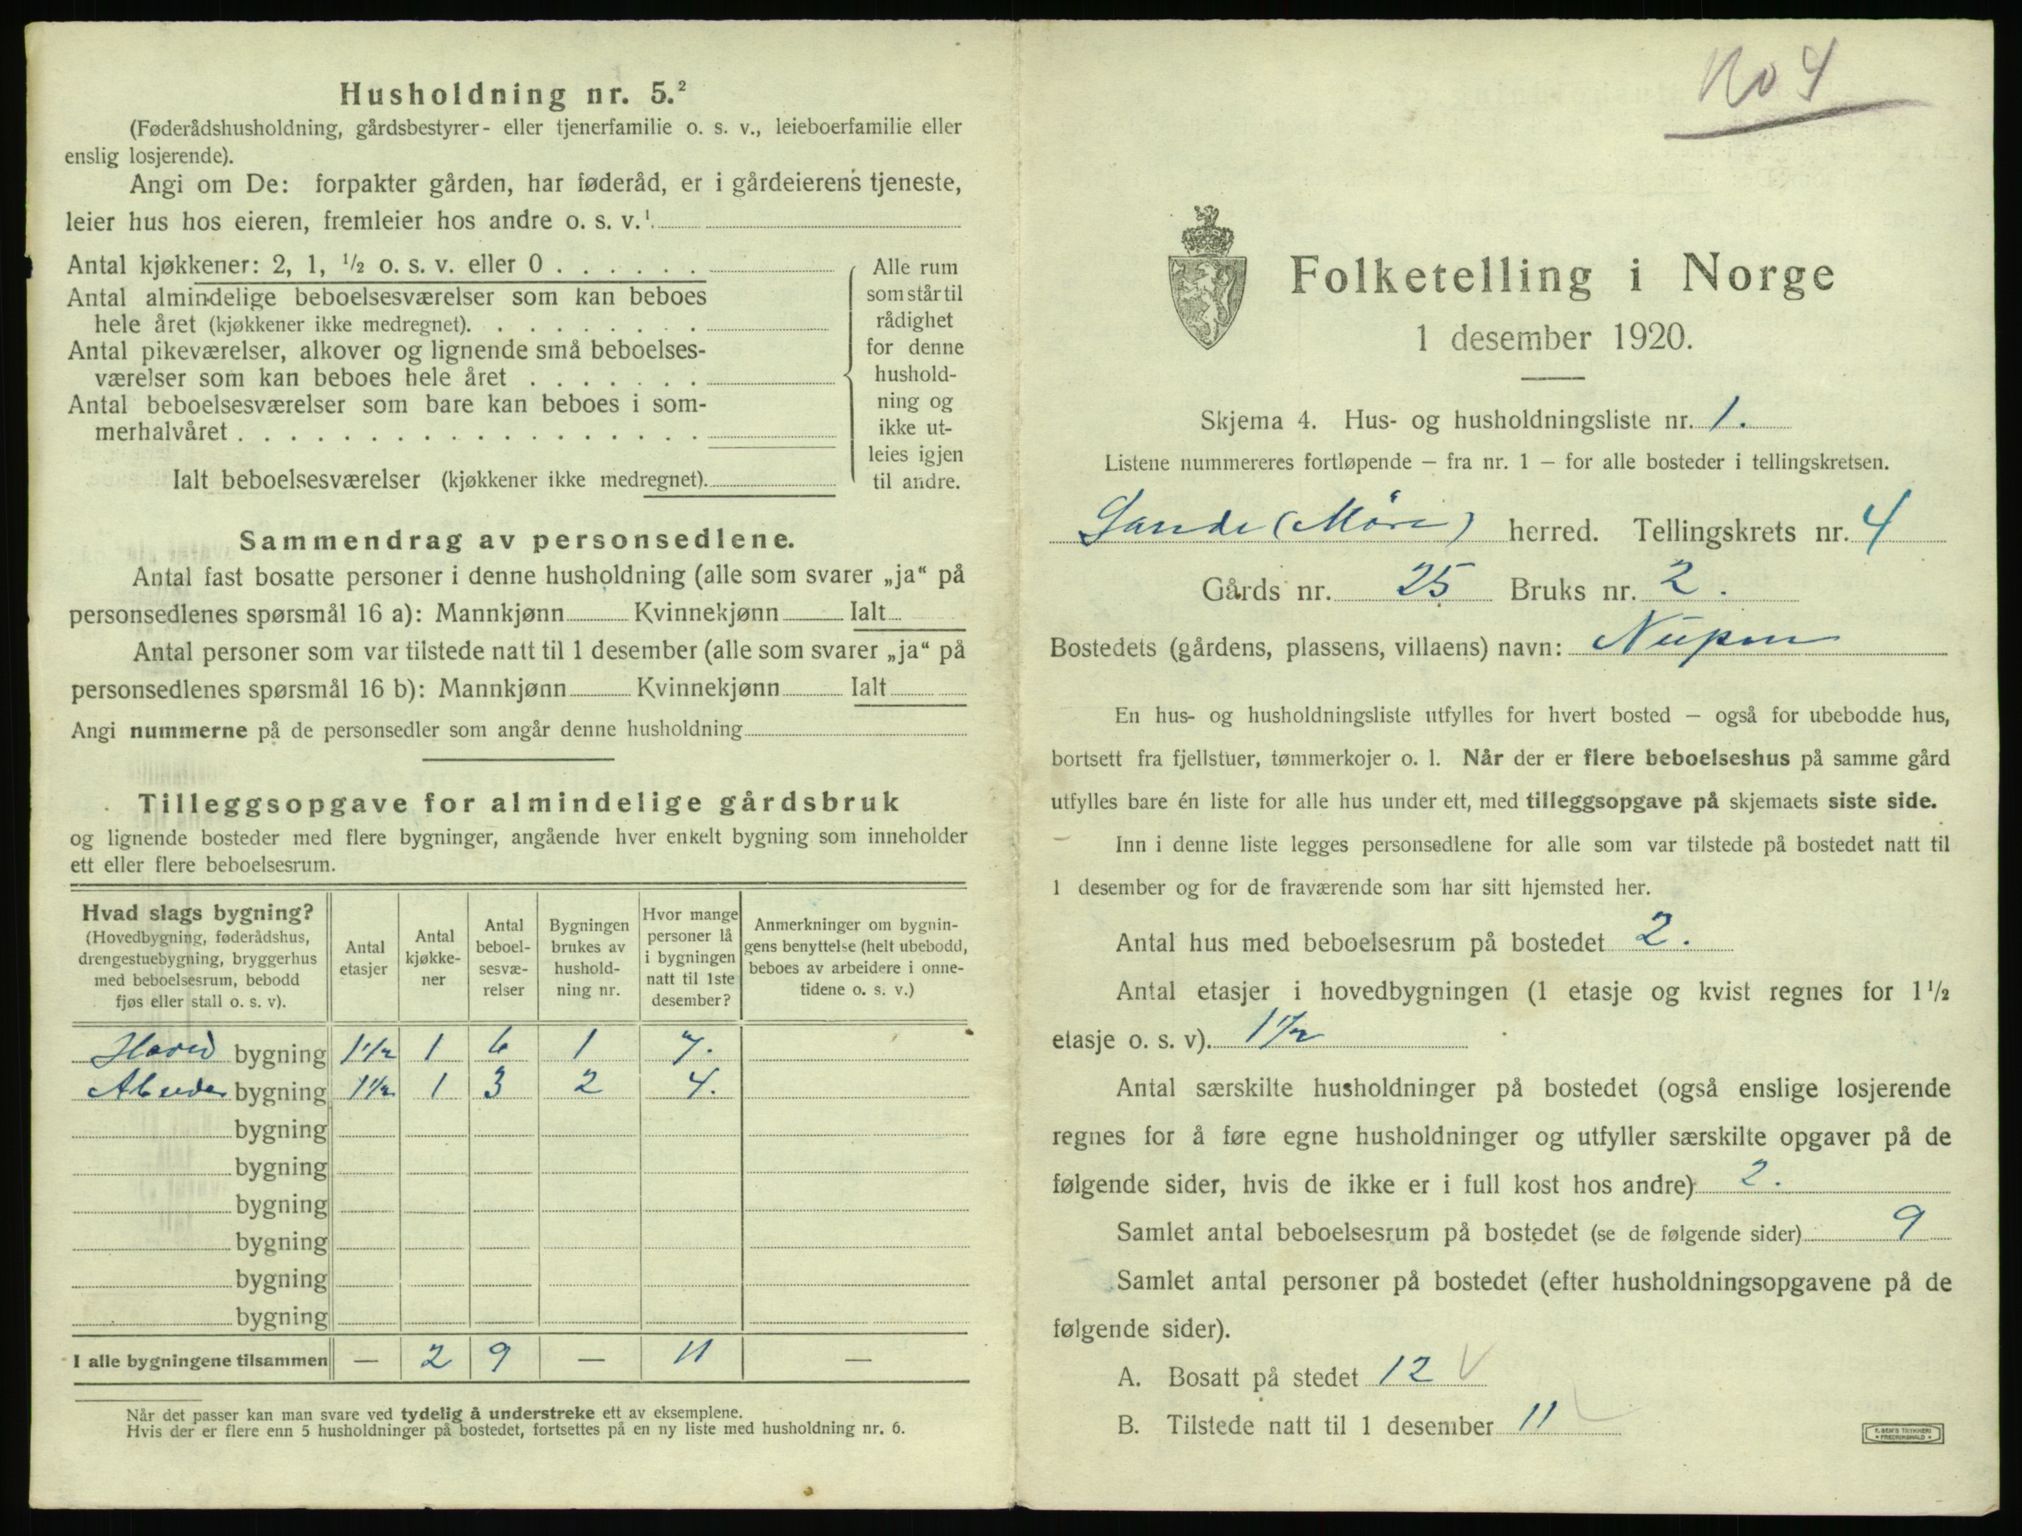 Husholdning nr. 5.²
(Føderådshusholdning, gårdsbestyrer- eller tjenerfamilie o. s. v., leieboerfamilie eller
enslig losjerende).
Angi om De: forpakter gården, har føderåd, er i gårdeierens tjeneste,
leier hus hos eieren, fremleier hos andre o. s. v.¹
Antal kjøkkener: 2, 1, ½ o. s. v. eller 0 . . . . . .
Antal almindelige beboelsesværelser som kan beboes
hele året (kjøkkener ikke medregnet). . . . . . . .
Antal pikeværelser, alkover og lignende små beboelses-
værelser som kan beboes hele året . . . . . . .
Antal beboelsesværelser som bare kan beboes i som-
merhalvåret . . . . . . . . . . . . . . . . .
Ialt beboelsesværelser (kjøkkener ikke medregnet).
Alle rum
som står til
rådighet
for denne
hushold-
ning og
ikke ut-
leies igjen
til andre.
Sammendrag av personsedlene.
Antal fast bosatte personer i denne husholdning (alle som svarer „ja“ på
personsedlenes spørsmål 16 a): Mannkjønn Kvinnekjønn Ialt
Antal personer som var tilstede natt til 1 desember (alle som svarer „ja“ på
personsedlenes spørsmål 16 b): Mannkjønn Kvinnekjønn Ialt
Angi nummerne på de personsedler som angår denne husholdning
Tilleggsopgave for almindelige gårdsbruk
og lignende bosteder med flere bygninger, angående hver enkelt bygning som inneholder
ett eller flere beboelsesrum.
Hvad slags bygning?
(Hovedbygning, føderådshus,
drengestuebygning, bryggerhus
med beboelsesrum, bebodd
fjøs eller stall o. s. v).
Antal
etasjer
Antal
kjøkke-
ner
Antal
beboel-
sesvæ-
relser
Bygningen
brukes av
hushold-
ning nr.
Hvor mange
personer lå
i bygningen
natt til 1ste
desember?
Anmerkninger om bygnin-
gens benyttelse (helt ubebodd,
beboes av arbeidere i onne-
tidene o. s. v.)
Hoved bygning 1½ 1 6 1 7.
bygning 1½ 1 3 2 4.
bygning
bygning
bygning
bygning
bygning
bygning
I alle bygningene tilsammen — 2 9 — 11 —
Når det passer kan man svare ved tydelig å understreke ett av eksemplene.
Hvis der er flere enn 5 husholdninger på bostedet, fortsettes på en ny liste med husholdning nr. 6.
No 4
Folketelling i Norge
1 desember 1920.
Skjema 4. Hus- og husholdningsliste nr. 1.
Listene nummereres fortløpende – fra nr. 1 – for alle bosteder i tellingskretsen.
Sande (Möre) herred. Tellingskrets nr. 4
Gårds nr. 25 Bruks nr. 2.
Bostedets (gårdens, plassens, villaens) navn: Nupen
En hus- og husholdningsliste utfylles for hvert bosted – også for ubebodde hus,
bortsett fra fjellstuer, tømmerkojer o. l. Når der er flere beboelseshus på samme gård
utfylles bare én liste for alle hus under ett, med tilleggsopgave på skjemaets siste side.
Inn i denne liste legges personsedlene for alle som var tilstede på bostedet natt til
1 desember og for de fraværende som har sitt hjemsted her.
Antal hus med beboelsesrum på bostedet 2.
Antal etasjer i hovedbygningen (1 etasje og kvist regnes for 1½
etasje o. s. v). 1½
Antal særskilte husholdninger på bostedet (også enslige losjerende
regnes for å føre egne husholdninger og utfyller særskilte opgaver på de
følgende sider, hvis de ikke er i full kost hos andre) 2.
Samlet antal beboelsesrum på bostedet (se de følgende sider) 9
Samlet antal personer på bostedet (efter husholdningsopgavene på de
følgende sider).
A. Bosatt på stedet 12
B. Tilstede natt til 1 desember 11